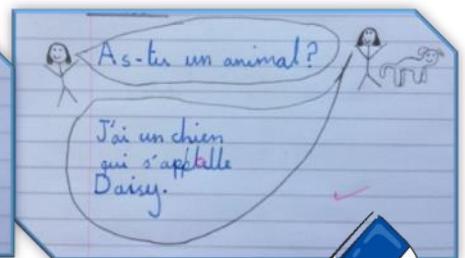 As-tu un animal?
J'ai un chien
qui s'appelle
Daisy.